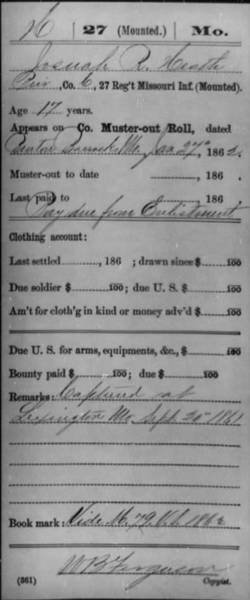 H | 27 (Mounted.) | Mo.
Josuah R. Heath
Priv, Co. E, 27 Reg't Missouri Inf. (Mounted).
Age 17 years.
Appears on Co. Muster-out Roll, dated
Benton Barracks Mo, Jan 27, 1862.
Muster-out to date , 186 .
Last paid to , 186 .
Pay due from Enlistment
Clothing account:
Last settled , 186 ; drawn since $ 100
Due soldier $ 100; due U. S. $ 100
Am't for cloth'g in kind or money adv'd $ 100
Due U. S. for arms, equipments, &c., $ 100
Bounty paid $ 100; due $ 100
Remarks: Captured at
Lexington Mo. Sept 20" 1861
Book mark: 1862
W B Ferguson
(361) Copyist.